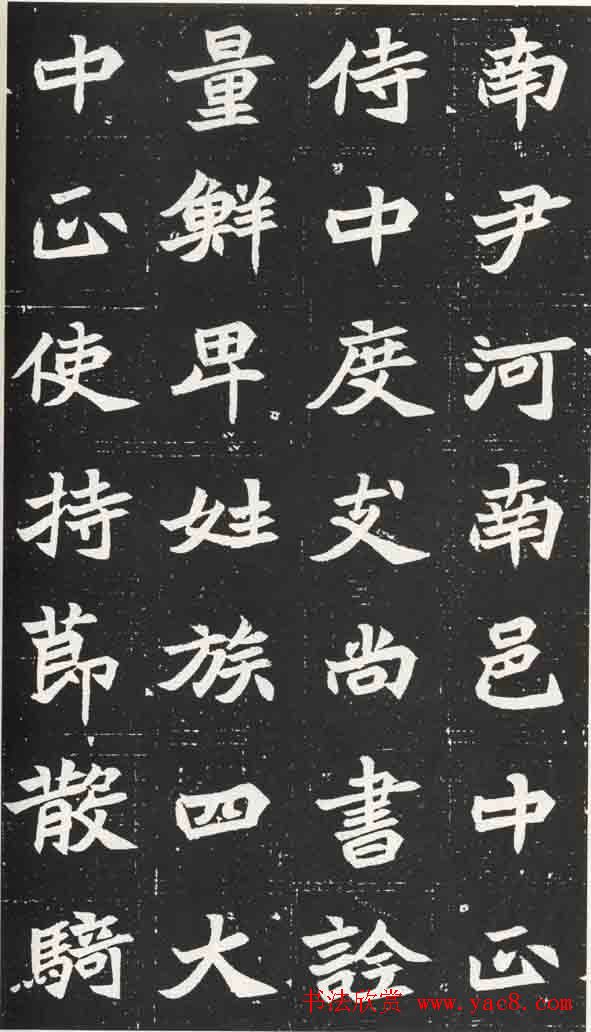 南尹河南邑中正
侍中度支尚書詮
量鮮卑姓族四大
中正使持節散騎
书法欣赏 www.yac8.com